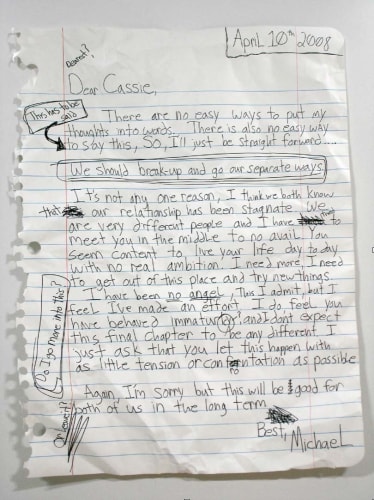 April 10th 2008
Dearest?,
Dear Cassie,
This has to be said
There are no easy ways to put my
thoughts into words. There is also no easy way
to say this, so, I'll just be straight forward.....
We should break-up and go our separate ways
It's not any one reason, I think we both know
that our relationship has been stagnate. We
are very different people and I have trying to
meet you in the middle to no avail. You
seem content to live your life day to day
with no real ambition. I need more, I need
to get out of this place and try new things.
I have been no angel. This I admit, but I
feel I've made an effort. I do feel you
have behaved immature, and I dont expect
this final chapter to be any different. I
just ask that you let this happen with
as little tension or confrontation as possible
Do I go more into this?
Again, I'm sorry but this will be good for
both of us in the long term
Or leave it?
Best,
Michael